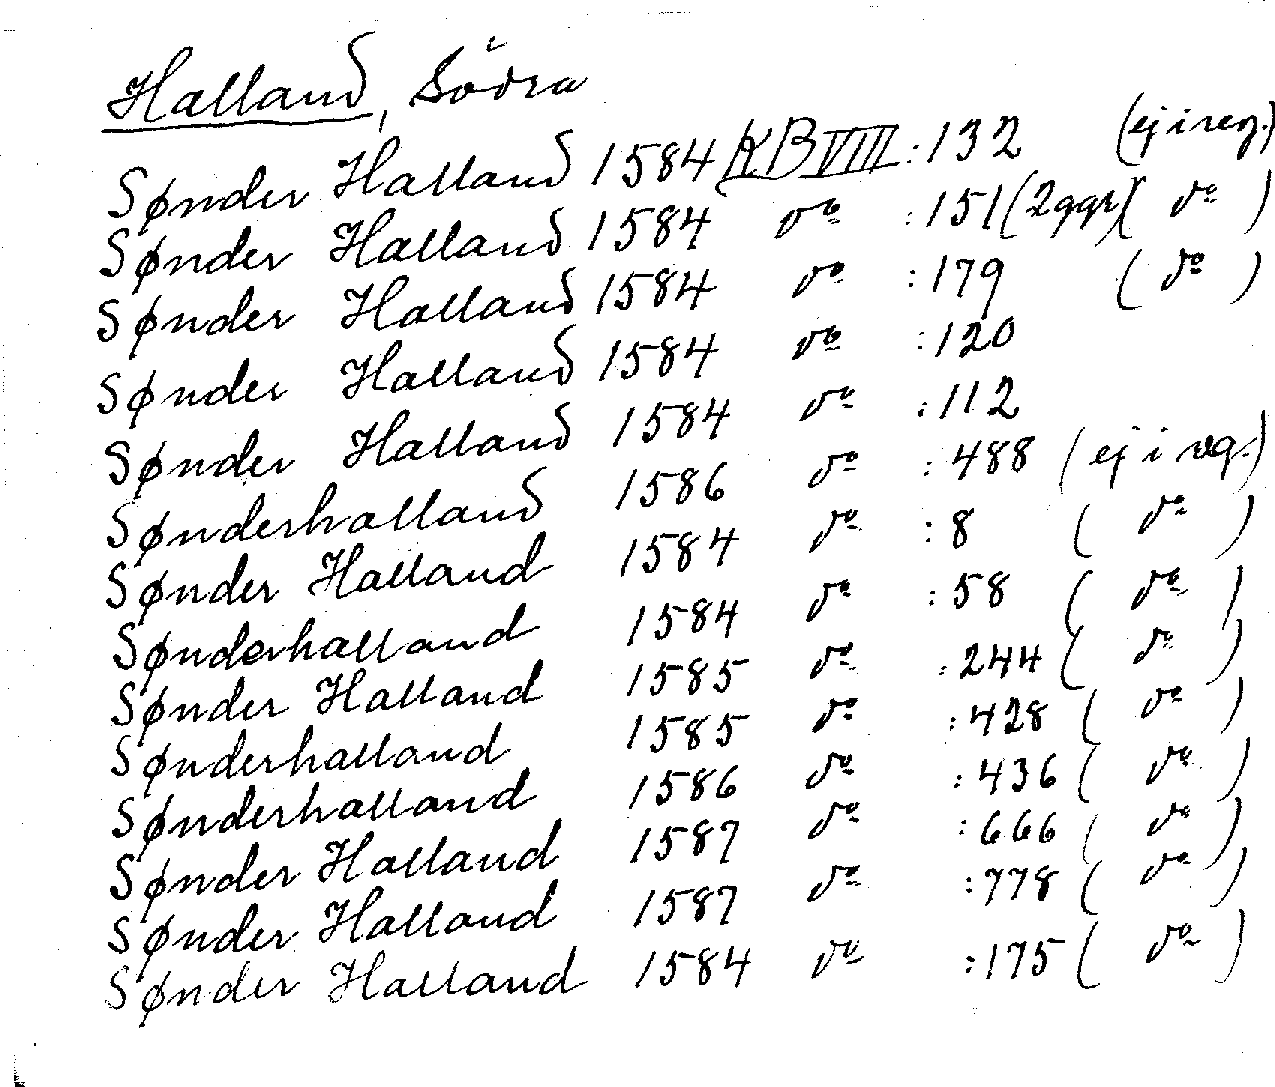 Halland, Södra
Sønder Halland 1584 KB VIII :132 (ej i reg.)
Sønder Halland 1584 do :151 (2 ggr) (do)
Sønder Halland 1584 do :179 (do)
Sønder Halland 1584 do :120
Sønder Halland 1584 do :112
Sønderhalland 1586 do :488 (ej i rg.)
Sønder Halland 1584 do :8 (do)
Sønderhalland 1584 do :58 (do)
Sønder Halland 1585 do :244 (do)
Sønderhalland 1585 do :428 (do)
Sønderhalland 1586 do :436 (do)
Sønder Halland 1587 do :666 (do)
Sønder Halland 1587 do :778 (do)
Sønder Halland 1584 do :175 (do)